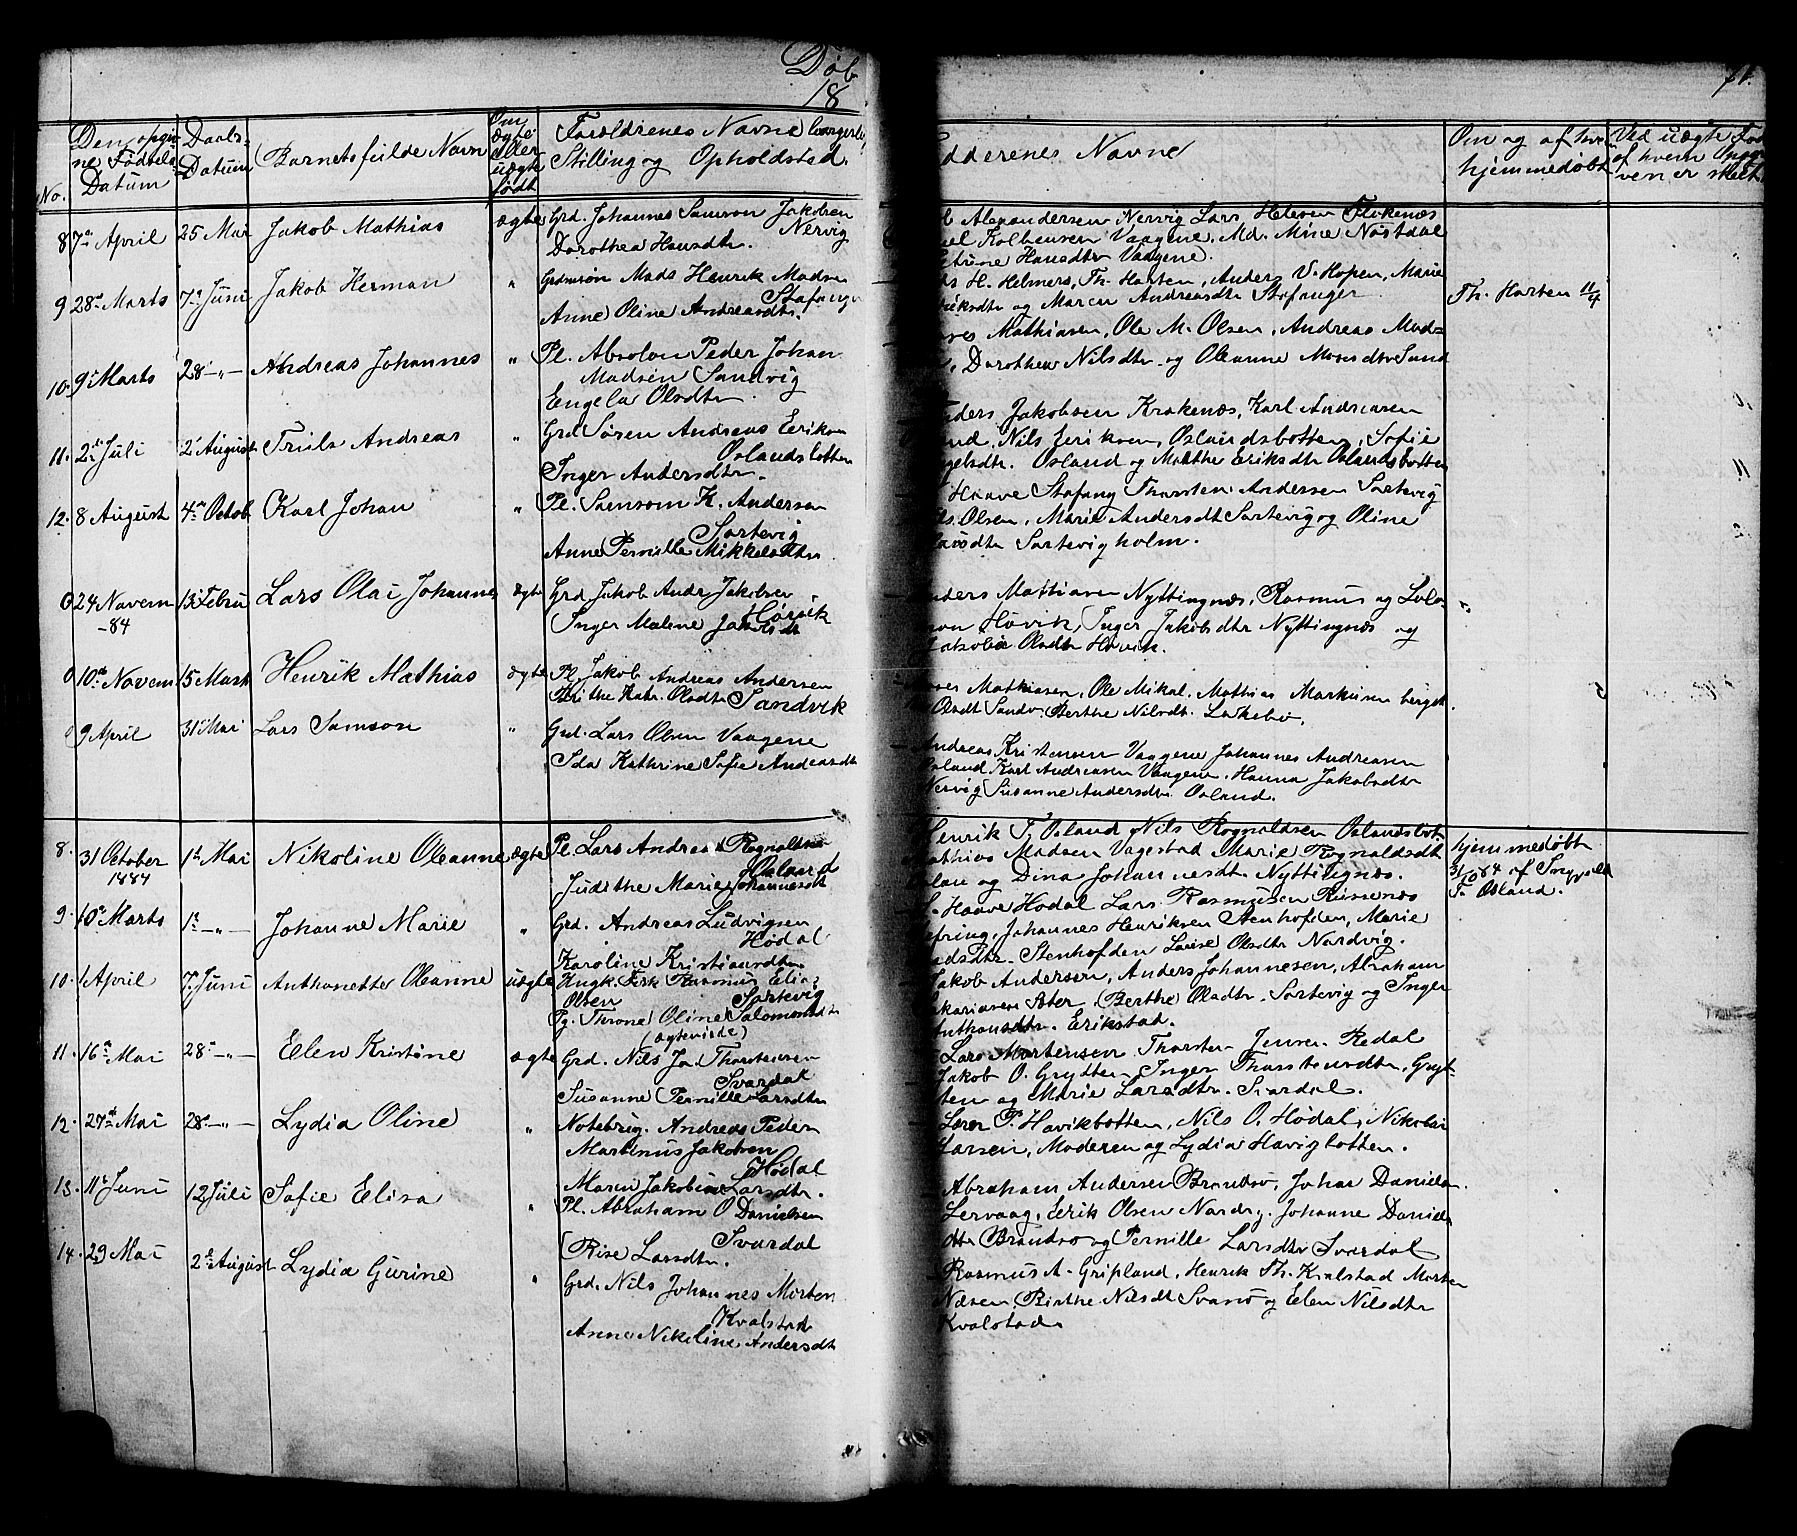 Døb
18
71.
No.
Den opgivne Fødsels Datum
Daabs-Datum
Barnets fulde Navn
Om ægte eller uægte født
Forældrenes Navne borgerl. Stilling og Opholdsted.
Fadderenes Navne
Om og af hvem hjemmedøbt
Ved uægte Fød af hvem Opgiven er skeet.
8 7de April 25 Mai Jakob Mathias ægte Grd. Johannes Samson Jakobsen
Nervig
Dorothea Hansdtr.
Alexandersen Nervig Lars Helesen Flokenæs
Kolbensen Vaagene. Md. Mine Nøstdal
Hansdtr Vaagene.
9 28de Marts 7de Juni Jakob Herman " Grdmsøn Mads Henrik Madsen
Stafanger
Anne Oline Andreasdtr.
H. Helmers, Th. Harten, Anders V. Hopen, Marie
og Maren Andreasdtr Stafanger
Th. Harten 11/4
10. 9de Marts 28 -"- Andreas Johannes " Pl. Absolon Peder Johan
Madsen Sandvig
Engela Olsdtr
Mathiasen, Ole M. Olsen, Andreas Mad-
Dorothea Nilsdtr. og Oleanne Monsdtr Sand
11. 2de Juli 2 August Triels Andreas " Grd Søren Andreas Eeriksen
Oslandsbotten
Inger Andersdtr.
Jakobsen Krakenæs, Karl Andreasen
Nils Eeriksen, Oslandsbotten, Sofie
Osland og Malthe Eriksdtr Oslandsbotten
12. 8 August 4de Octob Karl Johan " Pl. Samson K. Andersen
Sørtevig
Anne Pernille Mikkelsdtr
Haave Stafang Thorsten Andersen Sørtevig
Olsen, Marie Andersdt Sørtevig og Oline
Sørtevigholm.
0 24 Novem 13 Febru Lars Olai Johannes ægte Grd. Jakob Andr Jakobsen
-84
Hövik
Inger Malene
Mathiasen Nyttingnæs, Rasmus og
Hövik, Inger Jakobsdtr Nyttingnæs og
Olsdtr Hövik.
0 10de Novem 15 Marts Henrik Mathias ægte Pl. Jakob Andreas Andersen
Olsdtr Sandvik
Mathiasen, Ole Mikal, Mathias Markusen berget.
Olsdt Sandv. Berthe Nilsdt. Løkebø.
9 April 31 Mai Lars Samson " Grd. Lars Olsen Vaagene
Ida Kathrine Sofie Andersdtr
Andreas Kristensen Vaagene Johannes Andreasen
Osland Karl Andreasen Vaagene. Hanna Jakobsdtr
Nervig Susanne Andersdtr. Osland.
8. 31 October 1de Mai Nikoline Oleanne ægte Pl. Lars Andreas Rognaldsen
1884
Osland
Judithe Marie Johannesdt
Henrik T. Osland, Nils Rognaldsen Oslandsbot.
Mathias Madsen Vagestad Marie Rognaldsdt
og Dina Johannesdt. Nyttingnæs.
hjemmedøbt
31/10 84 af Ingvald
T. Osland.
9. 10de Marts 1de -"- Johanne Marie " Grd. Andreas Ludvigsen
Hødal
Karoline Kristiansdtr
Haave Hødal Lars Rasmussen Risnenæs
Johannes Henriksen Stenhofden, Marie
Stenhofden Lovise Olsdtr Nordvig.
10. 1 April 7de Juni Anthonette Oleanne uægte Ungk. Fisk Rasmus Elias
Olsen Sørtevig
Pg. Throne Oline Salomonsdtr
(ægteviede)
Jakob Andersen, Anders Johannesen, Abraham
Sakariasen Sæter, Berthe Olsdtr. Sørtevig og Inger
Anthonsdtr. Erikstad.
11. 16de Mai 28de -"- Elen Kristine ægte Grd. Nils Ja. Thorstensen
Svardal
Susanne Pernille Larsdtr
Lars Mortensen Thorsten Jensen Redal
Jakob O. Grytten, Inger Thorstensdtr, Gryt-
ten og Marie Larsdtr. Svardal.
12. 27de Mai 28de -"- Lydia Oline " Notebrug. Andreas Peder
Martinus Jakobsen
Hødal
Maren Jakobine Larsdtr.
P. Havikbotten, Nils O. Hødal, Nikolai
Larsen, Moderen og Lydia Havigbotten.
13. 11te Juni 12 Juli Sofie Elisa " Pl. Abraham O Danielsen
Svardal
Rise Larsdtr.
Abraham Andersen Brandsø, Johan Daniels.
Lervaag, Eerik Olsen Nordv. Johanne Daniels
dtr Brandsø og Pernille Larsdtr Svardal
14. 29 Mai 2de August Lydia Gurine " Grd. Nils Johannes Morten
Kvalstad
Anne Nikoline Andersdtr
Rasmus A. Gripland, Henrik Th. Kvalstad Morten
Næsen, Birthe Nilsdt Svanø og Elen Nilsdtr
Kvalstad